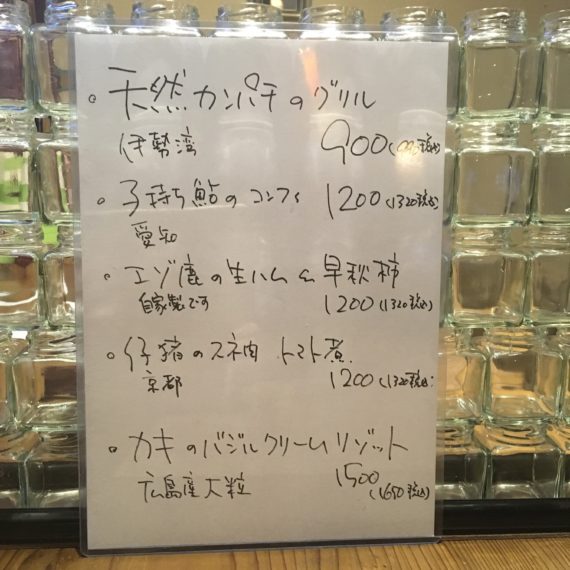 ・天然カンパチのグリル
伊勢湾 900(990税込)
・子持ち鮎のコンフィ 1200(1320税込)
愛知
・エゾ鹿の生ハム&早秋柿
自家製です 1200(1320税込)
・仔猪のスネ肉 トマト煮
京都 1200(1320税込)
・カキのバジルクリームリゾット
広島産大粒 1500
(1650税込)